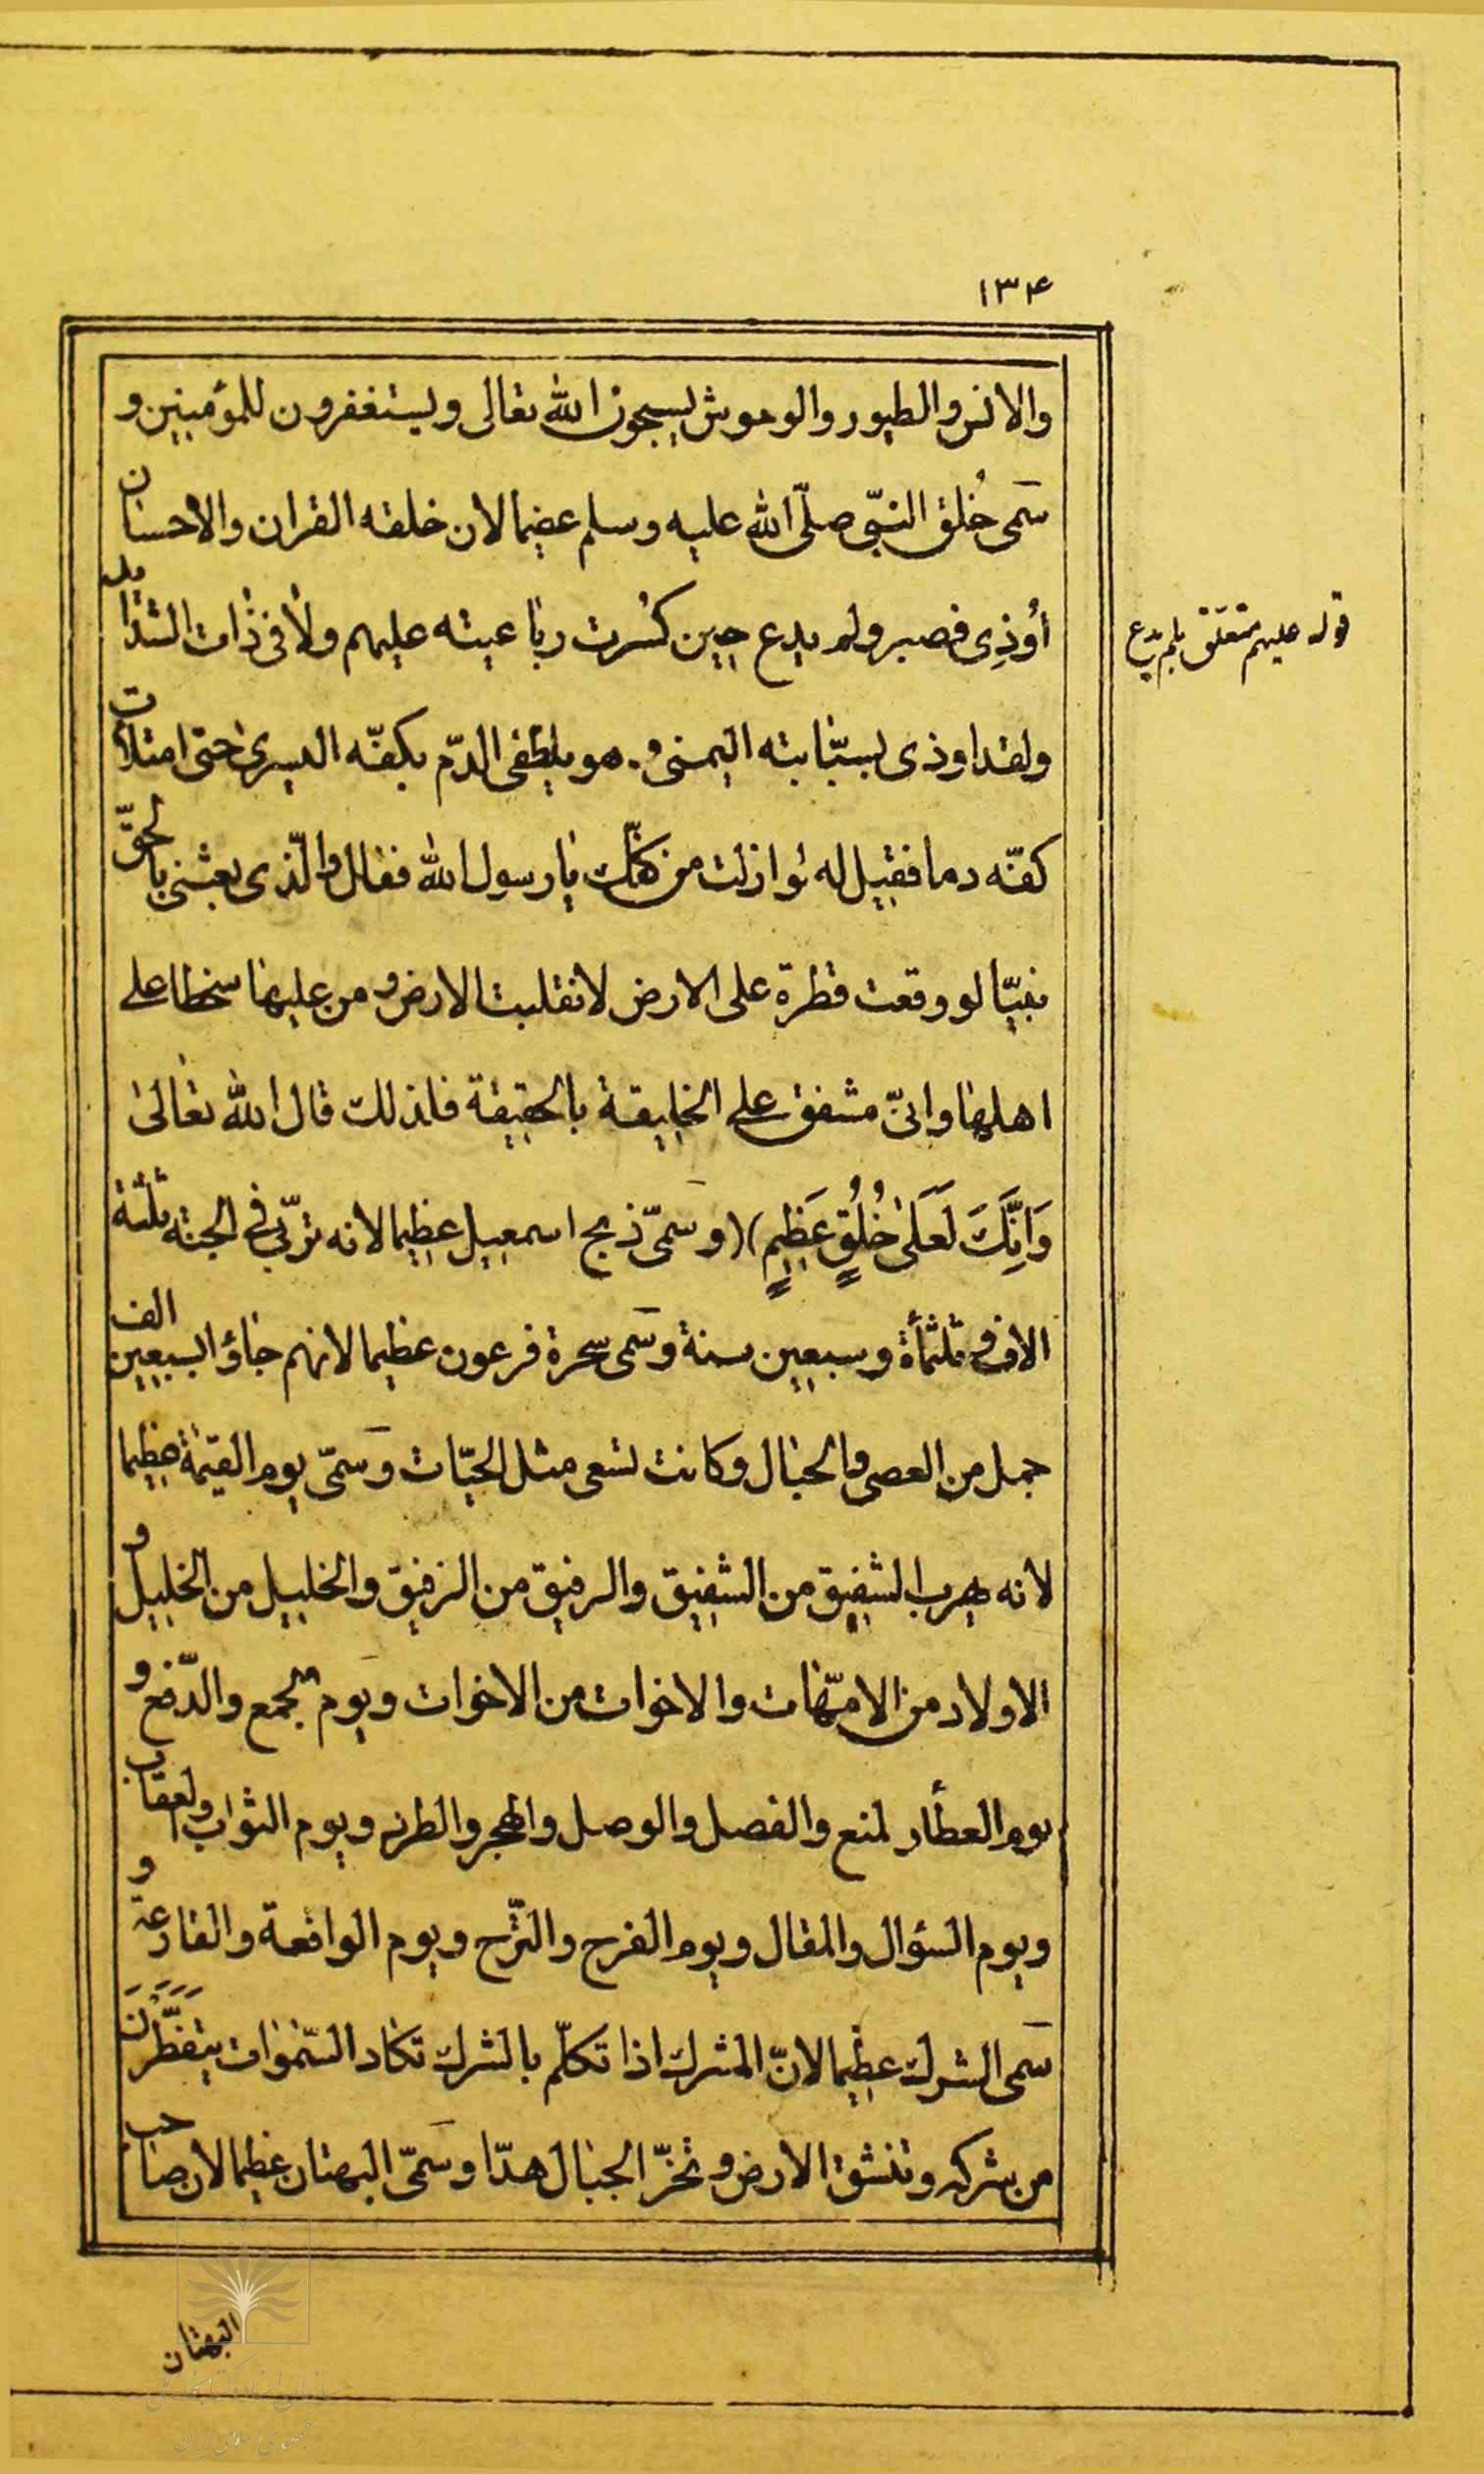 ١٣۴
والانس والطيور والوحوش يسبحون الله تعالى ويستغفرون للمؤمنين و
سَمى خُلق النبّى صلّى الله عليه وسلم عضيما لان خلقه القران والاحسان
اُوذِى فصبر ولم يدع حين كُسرت رباعيته عليهم ولا فى ذات الشدايد
قوله عليهم متعلّق بلم يدع
ولقد اوذى بسبّابته اليمنى و هو يلطفى الدّم بكفّه اليسرى حتى امتلأت
كفّه دما فقيل له لو ازلت من كفّك يا رسول الله فقال والّذى بعثنى بالحقّ
نبيّا لو وقعت قطرة على الارض لانقلبت الارض و من عليها سخطا على
اهلها وانىّ مشفق على الخليقة بالحقيقة فلذلك قال الله تعالى
وَاِنَّكَ لَعَلىٰ خُلُقٍ عَظٖيمٍ) (و سمىّ ذبح اسمعيل عظيما لانه تربّى فى الجنة ثلثة
الاف و ثلثمأة وسبعين سنة وسمى سحرة فرعون عظيما لانهم جاؤا بسبعين الف
جمل من العصى والحبال وكانت تسعى مثل الحيّات وَسمّى يوم القيٰمة عظيما
لانه يهرب الشفيق من الشفيق والرفيق من الرفيق والخليل من الخليل و
الاولاد من الامّهات والاخوات من الاخوات ويوم الجمع والدّفع و
يوم العطأ والمنع والفصل والوصل والهجر والطرد ويوم الثواب والعقاب
ويوم السؤال والمقال ويوم الفرح والتّرح ويوم الواقعة والقارعة و
سَمى الشرك عظيما لانّ المشرك اذا تكلّم بالشرك تكاد السّمٰوات يَتَفَطَّرْنَ
من شركه وتنشق الارض و تخرّ الجبال هدّا وسَمّى البهتان عظيما لان صاحب
البهتان